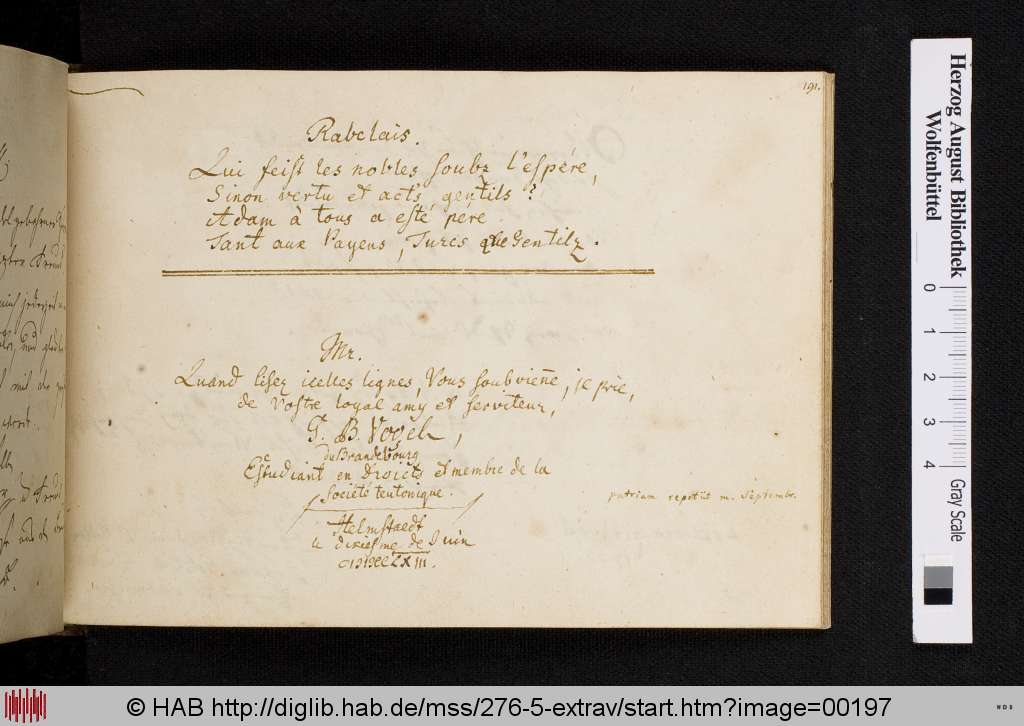 191.
Rabelais.
Qui feist les nobles soubz l'espére,
Sinon vertu et acts gentils?
Adam à tous a esté pere
Tant aux Payens, Turcs que Gentilz.
Mr.
Quand lisez icelles lignes, Vous soubvienne, je prie,
de Vostre loyal amy et serviteur,
G. B. Vogel,
du Brandebourg
Estudiant en droicts et membre de la
Societé teutonique.
Helmstaedt
a dixiesme de Juin
patriam repetiit m. Septembr.
Herzog August Bibliothek
Wolfenbüttel
0 1 2 3 4
Gray Scale
© HAB http://diglib.hab.de/mss/276-5-extrav/start.htm?image=00197